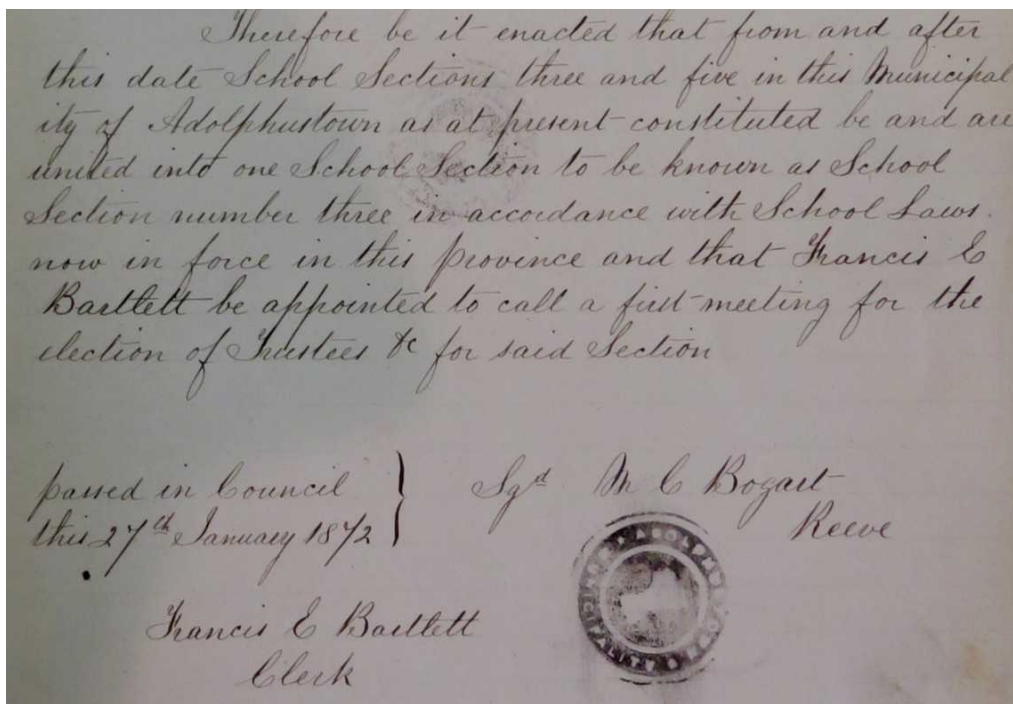 Therefore be it enacted that from and after
this date School Sections three and five in this Municipal
ity of Adolphustown as at present constituted be and are
united into one School Section to be known as School
Section number three in accordance with School Laws
now in force in this province and that Francis E
Bartlett be appointed to call a first meeting for the
election of Trustees &c for said Section
passed in Council
this 27th January 1872
Sgd M C Bogart
Reeve
Francis E Bartlett
Clerk